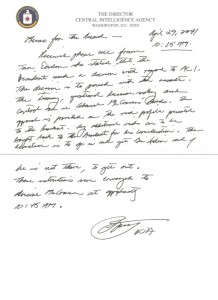 THE DIRECTOR
CENTRAL INTELLIGENCE AGENCY
WASHINGTON, D.C. 20505
Memo for the Record April 29, 2011
10:35 AM
Received phone call from
Tom Donilon who stated that the
President made a decision with regard to AC1.
The decision is to proceed with the assault.
The timing, operational decision making and
control are in Admiral McRaven's hands. The
approval is provided on the risk profile presented
to the President. Any additional risks are to be
brought back to the President for his consideration. The
direction is to go in and get Bin Laden and if
he is not there, to get out.
Those instructions were conveyed to
Admiral McRaven at approximately
10:45 AM.
DCIA